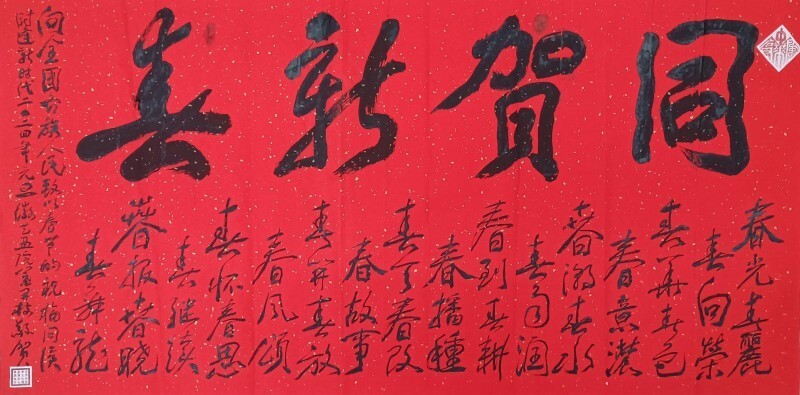 同賀新春
春光春麗
春向榮
春華春色
春意濃
春潮春水
春雨润
春到春耕
春播種
春天春
春故事
春开春放
春風頌
春怀春思
春继续
春报春晓
春舞龍
向全國各族人民致以春节的祝福问候
时逢新时代二〇二四年元旦 贺